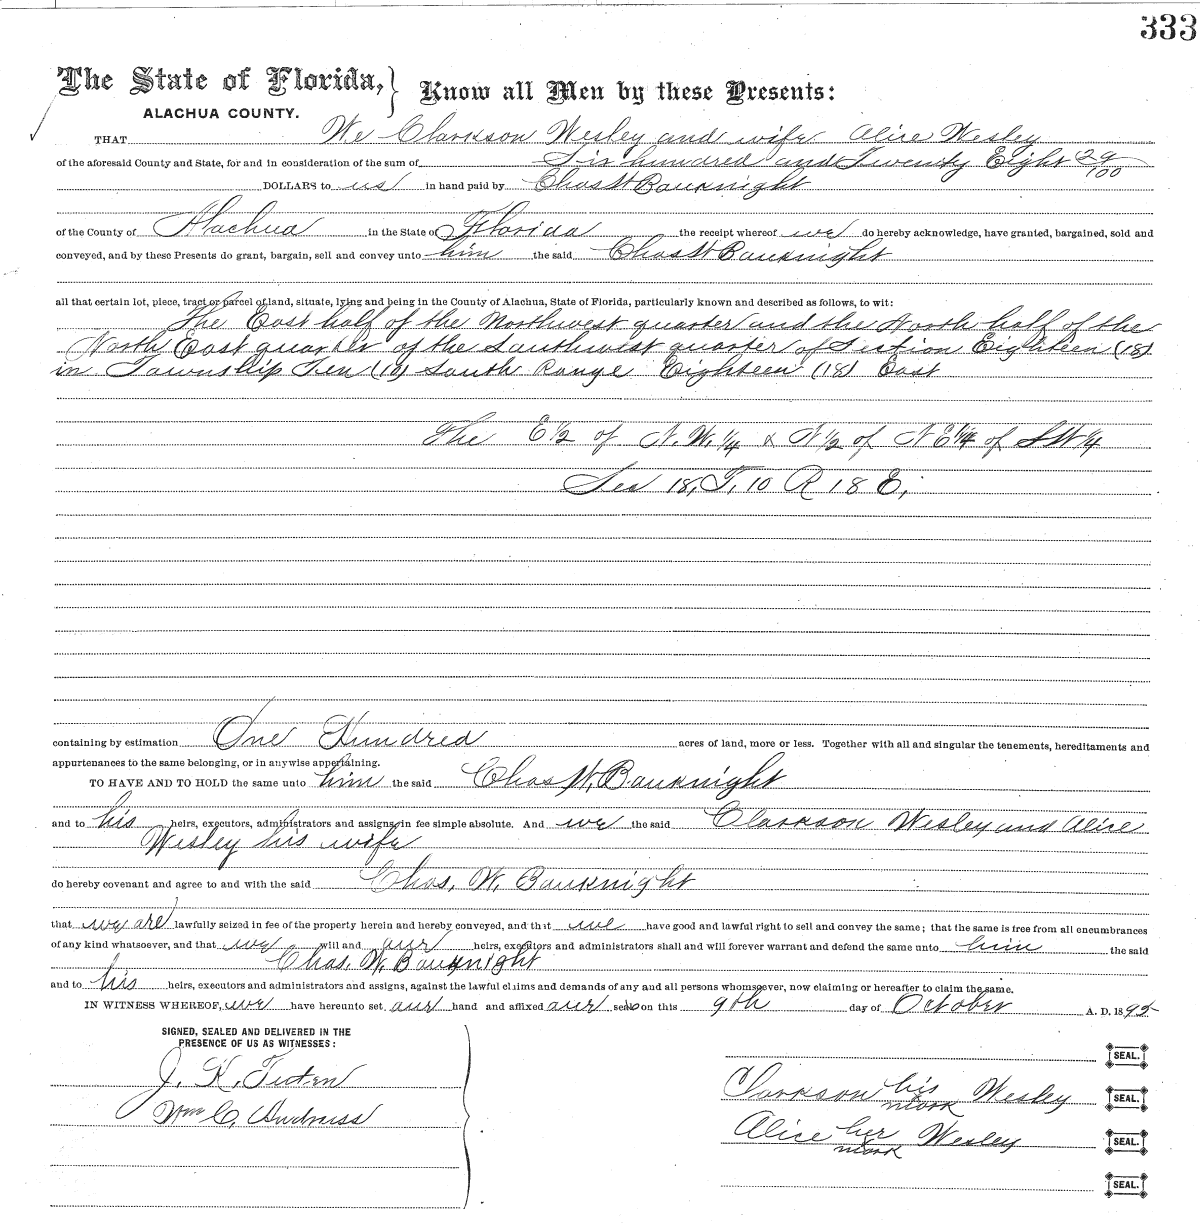 333
The State of Florida, } Know all Men by these Presents:
ALACHUA COUNTY.
THAT We Clarkson Wesley and wife Alice Wesley
of the aforesaid County and State, for and in consideration of the sum of Six hundred and Twenty Eight 29/100
DOLLARS to us in hand paid by Chas W Bauknight
of the County of Alachua in the State of Florida the receipt whereof we do hereby acknowledge, have granted, bargained, sold and
conveyed, and by these Presents do grant, bargain, sell and convey unto him the said Chas W Bauknight
all that certain lot, piece, tract or parcel of land, situate, lying and being in the County of Alachua, State of Florida, particularly known and described as follows, to wit:
The East half of the Northwest quarter and the North half of the
North East quarter of the Southwest quarter of Section Eighteen (18)
in Township Ten (10) South Range Eighteen (18) East
The E 1/2 of N.W. 1/4 & N 1/2 of N E 1/4 of S W 1/4
Sec 18, T. 10 R 18 E,
containing by estimation One Hundred acres of land, more or less. Together with all and singular the tenements, hereditaments and
appurtenances to the same belonging, or in anywise appertaining.
TO HAVE AND TO HOLD the same unto him the said Chas W. Bauknight
and to his heirs, executors, administrators and assigns in fee simple absolute. And we the said Clarkson Wesley and Alice
Wesley his wife
do hereby covenant and agree to and with the said Chas. W. Bauknight
that we are lawfully seized in fee of the property herein and hereby conveyed, and that we have good and lawful right to sell and convey the same; that the same is free from all encumbrances
of any kind whatsoever, and that we will and our heirs, executors and administrators shall and will forever warrant and defend the same unto him the said
Chas. W. Bauknight
and to his heirs, executors and administrators and assigns, against the lawful claims and demands of any and all persons whomsoever, now claiming or hereafter to claim the same.
IN WITNESS WHEREOF, we have hereunto set our hand and affixed our seals on this 9th day of October A. D. 1895
SIGNED, SEALED AND DELIVERED IN THE
PRESENCE OF US AS WITNESSES:
SEAL.
J. K.
Clarkson his mark Wesley SEAL.
Wm C.
Alice her mark Wesley SEAL.
SEAL.